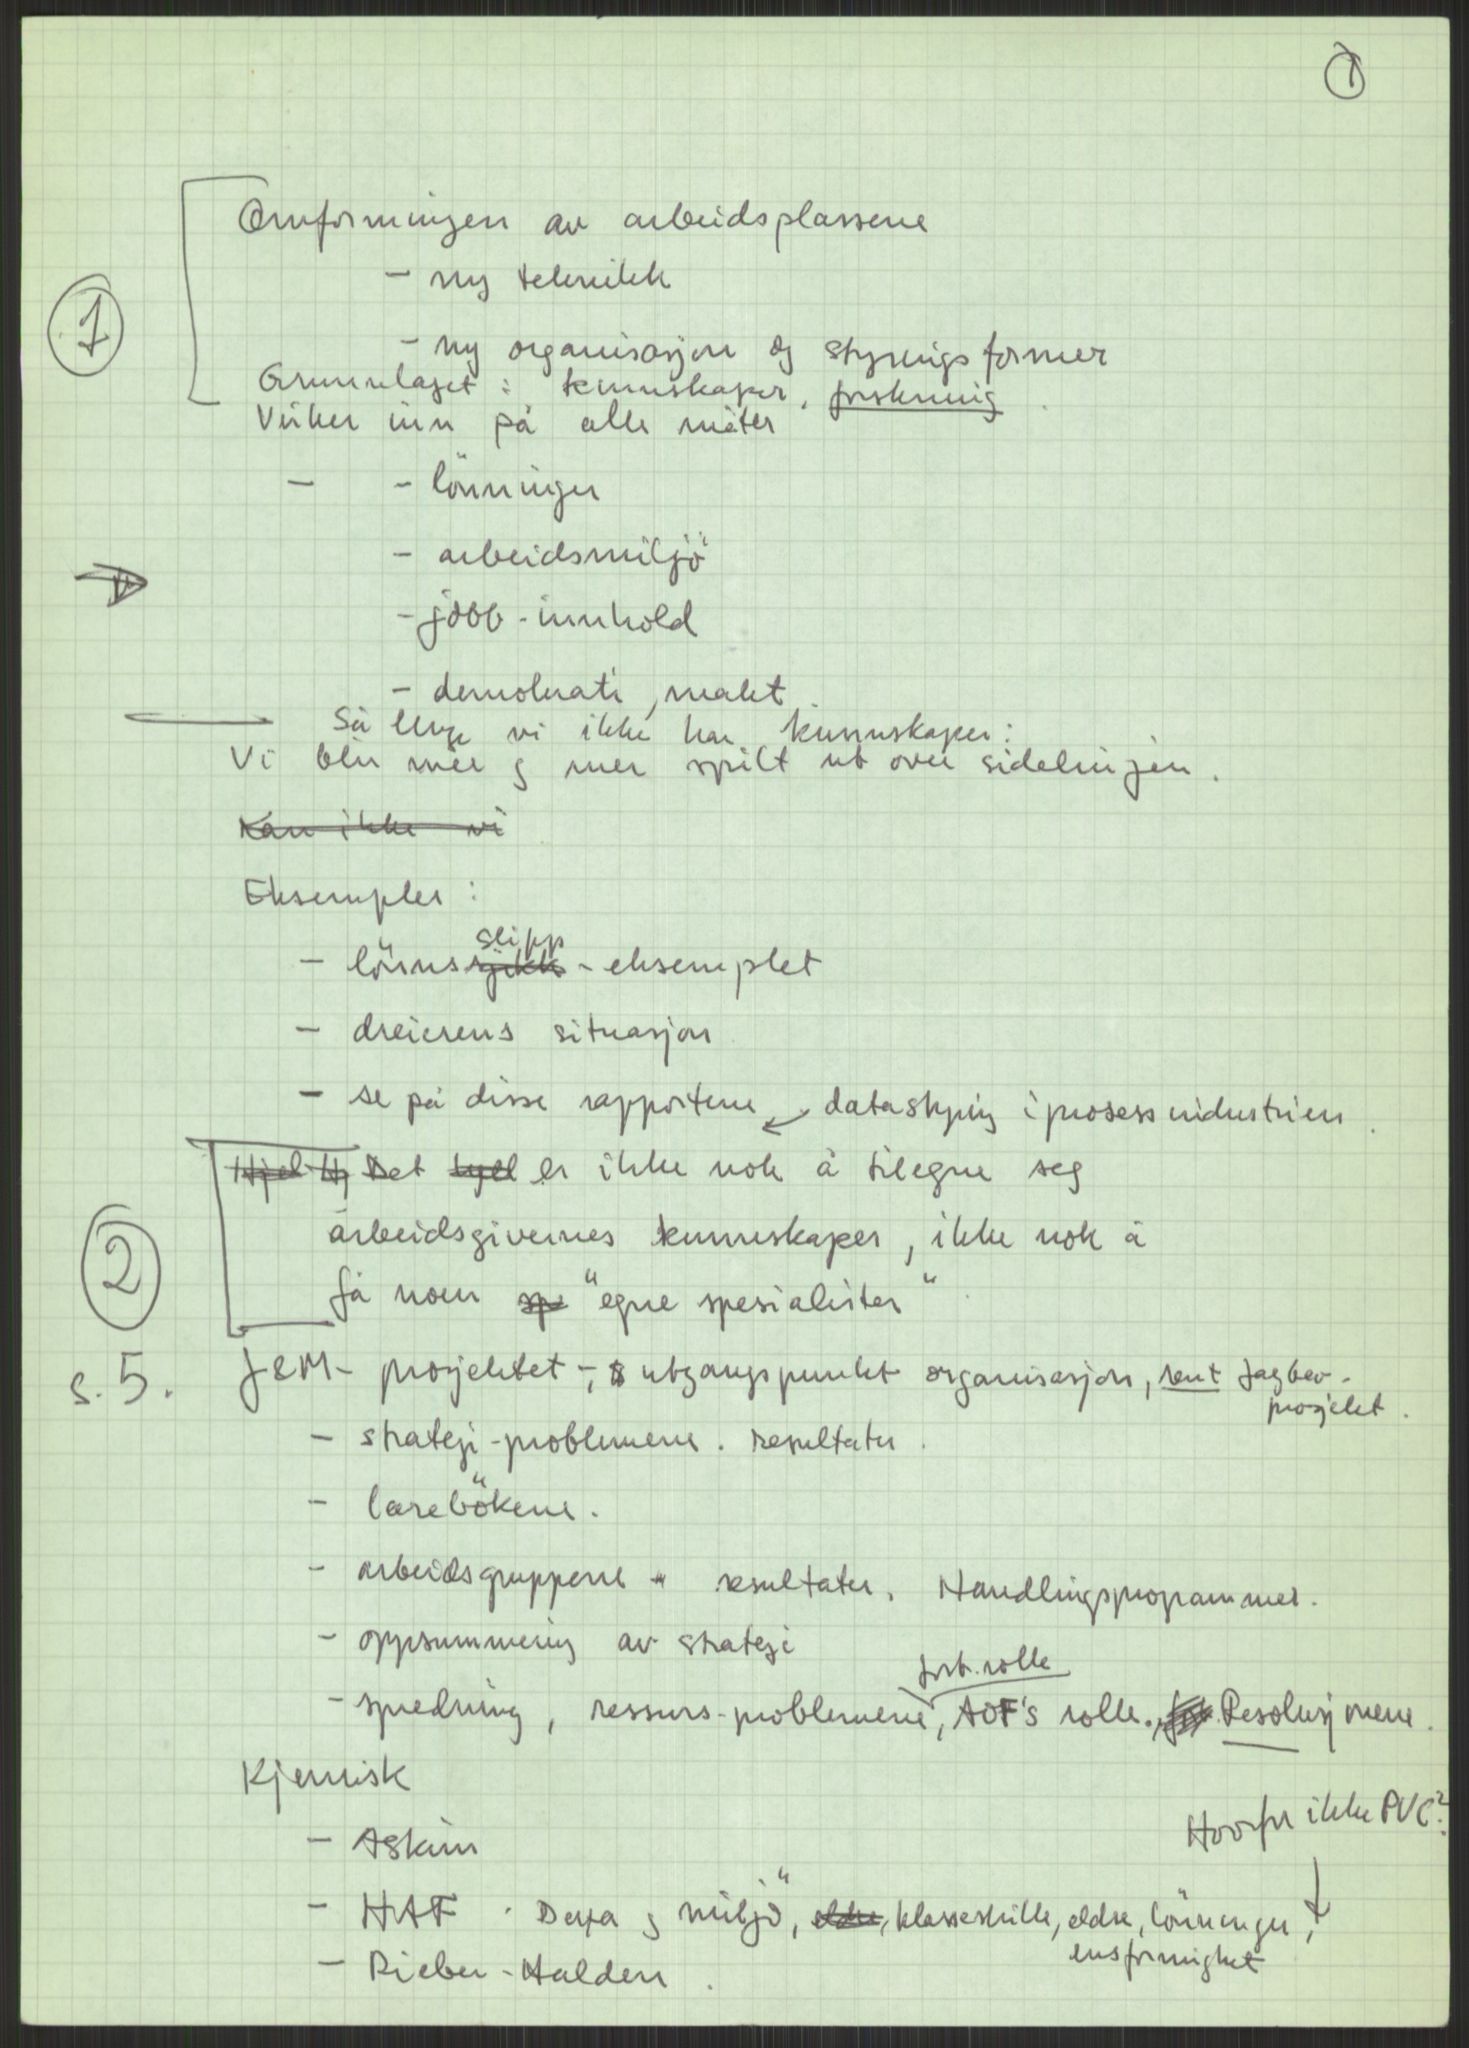 1
Omformingen av arbeidsplassene
- ny teknikk
1
- ny organisasjon og styringsformer
Grunnlaget : kunnskaper, forskning.
Virker inn på alle måter
- - lönninger
- arbeidsmiljö
- jobb-innhold
- demokrati, makt
Så lenge vi ikke har kunnskaper:
Vi blir mer og mer spilt ut over sidelinjen.
Kan ikke vi
Eksempler :
slipp
- lönns - eksemplet
- dreierens situasjon
- se på disse rapportene datastyring i prosessindustrien.
Det er ikke nok å tilegne seg
arbeidsgivernes kunnskaper, ikke nok å
2
få noen sp "egne spesialister".
s. 5. J&M - prosjektet -, utgangspunkt organisasjon, rent fagbev-
prosjekt.
- strategi-problemene. resultater.
- lærebökene.
- arbeidsgruppene - resultater. Handlingsprogrammer.
- oppsummering av strategi
forb. rolle
- spredning, ressurs-problemene, AOF's rolle. Resolusjonene.
Kjemisk
Hvorfor ikke PVC?
- Askim
- HAF . og miljö, eldre, klasseskille, eldre, lönninger,
ensformighet
- Rieber - Halden.